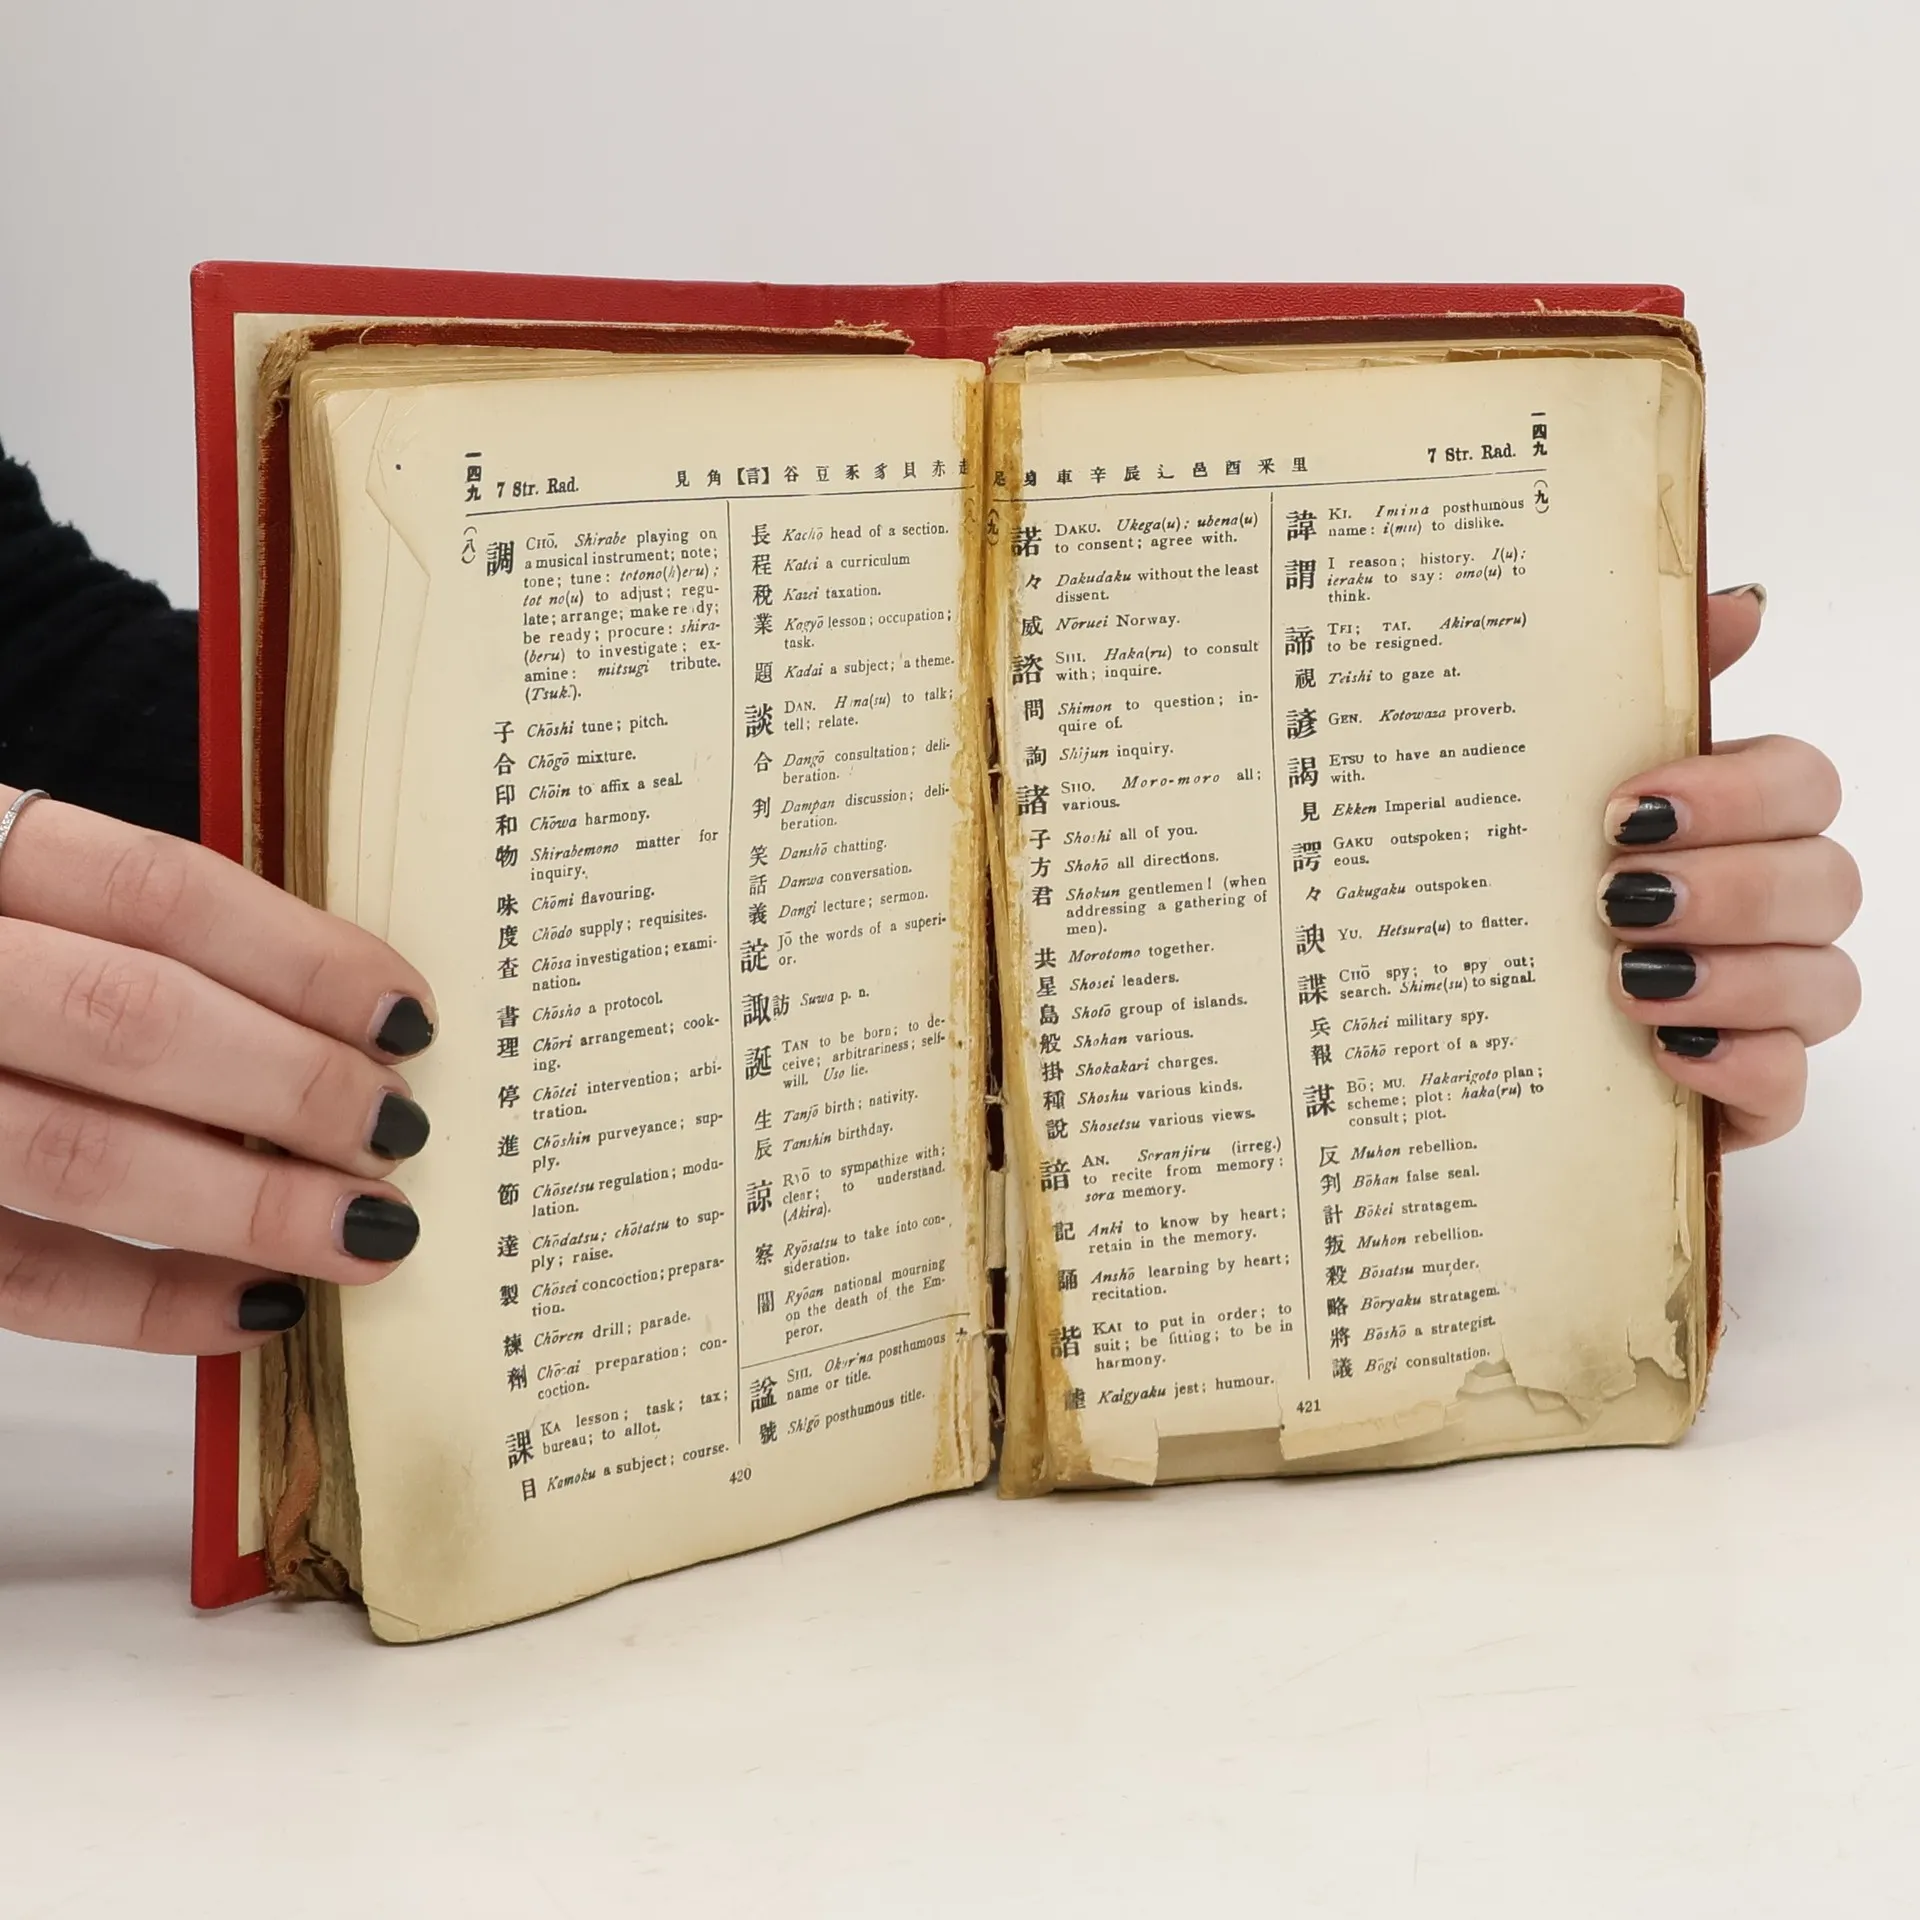 一四九 7 Str. Rad. 見角【言】谷豆豕豸貝赤走
(八)
調 CHŌ. Shirabe playing on
a musical instrument; note;
tone; tune: totono(h)eru);
tot no(u) to adjust; regu-
late; arrange; make re dy;
be ready; procure: shira-
(beru) to investigate; ex-
amine: mitsugi tribute.
(Tsuk.).
子 Chōshi tune; pitch.
合 Chōgō mixture.
印 Chōin to affix a seal.
和 Chōwa harmony.
物 Shirabemono matter for
inquiry.
味 Chōmi flavouring.
度 Chōdo supply; requisites.
査 Chōsa investigation; exami-
nation.
書 Chōsho a protocol.
理 Chōri arrangement; cook-
ing.
停 Chōtei intervention; arbi-
tration.
進 Chōshin purveyance; sup-
ply.
節 Chōsetsu regulation; modu-
lation.
達 Chōdatsu; chōtatsu to sup-
ply; raise.
製 Chōsei concoction; prepara-
tion.
練 Chōren drill; parade.
劑 Chō-ai preparation; con-
coction.
課 KA lesson; task; tax;
bureau; to allot.
目 Kamoku a subject; course.
長 Kachō head of a section.
程 Katei a curriculum
稅 Kazei taxation.
業 Kagyō lesson; occupation;
task.
題 Kadai a subject; a theme.
談 DAN. H na(su) to talk;
tell; relate.
合 Dangō consultation; deli-
beration.
判 Dampan discussion; deli-
beration.
笑 Danshō chatting.
話 Danwa conversation.
義 Dangi lecture; sermon.
諚 JŌ the words of a superi-
or.
諏訪 Suwa p. n.
誕 TAN to be born; to de-
ceive; arbitrariness; self-
will. Uso lie.
生 Tanjō birth; nativity.
辰 Tanshin birthday.
諒 RYŌ to sympathize with;
clear; to understand.
(Akira).
察 Ryōsatsu to take into con-
sideration.
闇 Ryōan national mourning
on the death of the Em-
peror.
九
諡 SHI. Okur'na posthumous
name or title.
號 Shigō posthumous title.
420
足身車辛辰辶邑酉釆里 7 Str. Rad. 一四九
(九)
諾 DAKU. Ukega(u); ubena(u)
to consent; agree with.
々 Dakudaku without the least
dissent.
威 Nōruei Norway.
諮 SHI. Haka(ru) to consult
with; inquire.
問 Shimon to question; in-
quire of.
詢 Shijun inquiry.
諸 SHO. Moro-moro all;
various.
子 Shoshi all of you.
方 Shohō all directions.
君 Shokun gentlemen! (when
addressing a gathering of
men).
共 Morotomo together.
星 Shosei leaders.
島 Shotō group of islands.
般 Shohan various.
掛 Shokakari charges.
種 Shoshu various kinds.
說 Shosetsu various views.
諳 AN. Soranjiru (irreg.)
to recite from memory:
sora memory.
記 Anki to know by heart;
retain in the memory.
誦 Anshō learning by heart;
recitation.
諧 KAI to put in order; to
suit; be fitting; to be in
harmony.
謔 Kaigyaku jest; humour.
(九)
諱 KI. Imina posthumous
name: i(mu) to dislike.
謂 I reason; history. I(u);
ieraku to say: omo(u) to
think.
諦 TEI; TAI. Akira(meru)
to be resigned.
視 Teishi to gaze at.
諺 GEN. Kotowaza proverb.
謁 ETSU to have an audience
with.
見 Ekken Imperial audience.
諤 GAKU outspoken; right-
eous.
々 Gakugaku outspoken.
諛 YU. Hetsura(u) to flatter.
諜 CHŌ spy; to spy out;
search. Shime(su) to signal.
兵 Chōhei military spy.
報 Chōhō report of a spy.
謀 BŌ; MU. Hakarigoto plan;
scheme; plot: haka(ru) to
consult; plot.
反 Muhon rebellion.
判 Bōhan false seal.
計 Bōkei stratagem.
叛 Muhon rebellion.
殺 Bōsatsu murder.
略 Bōryaku stratagem.
將 Bōshō a strategist.
議 Bōgi consultation.
421